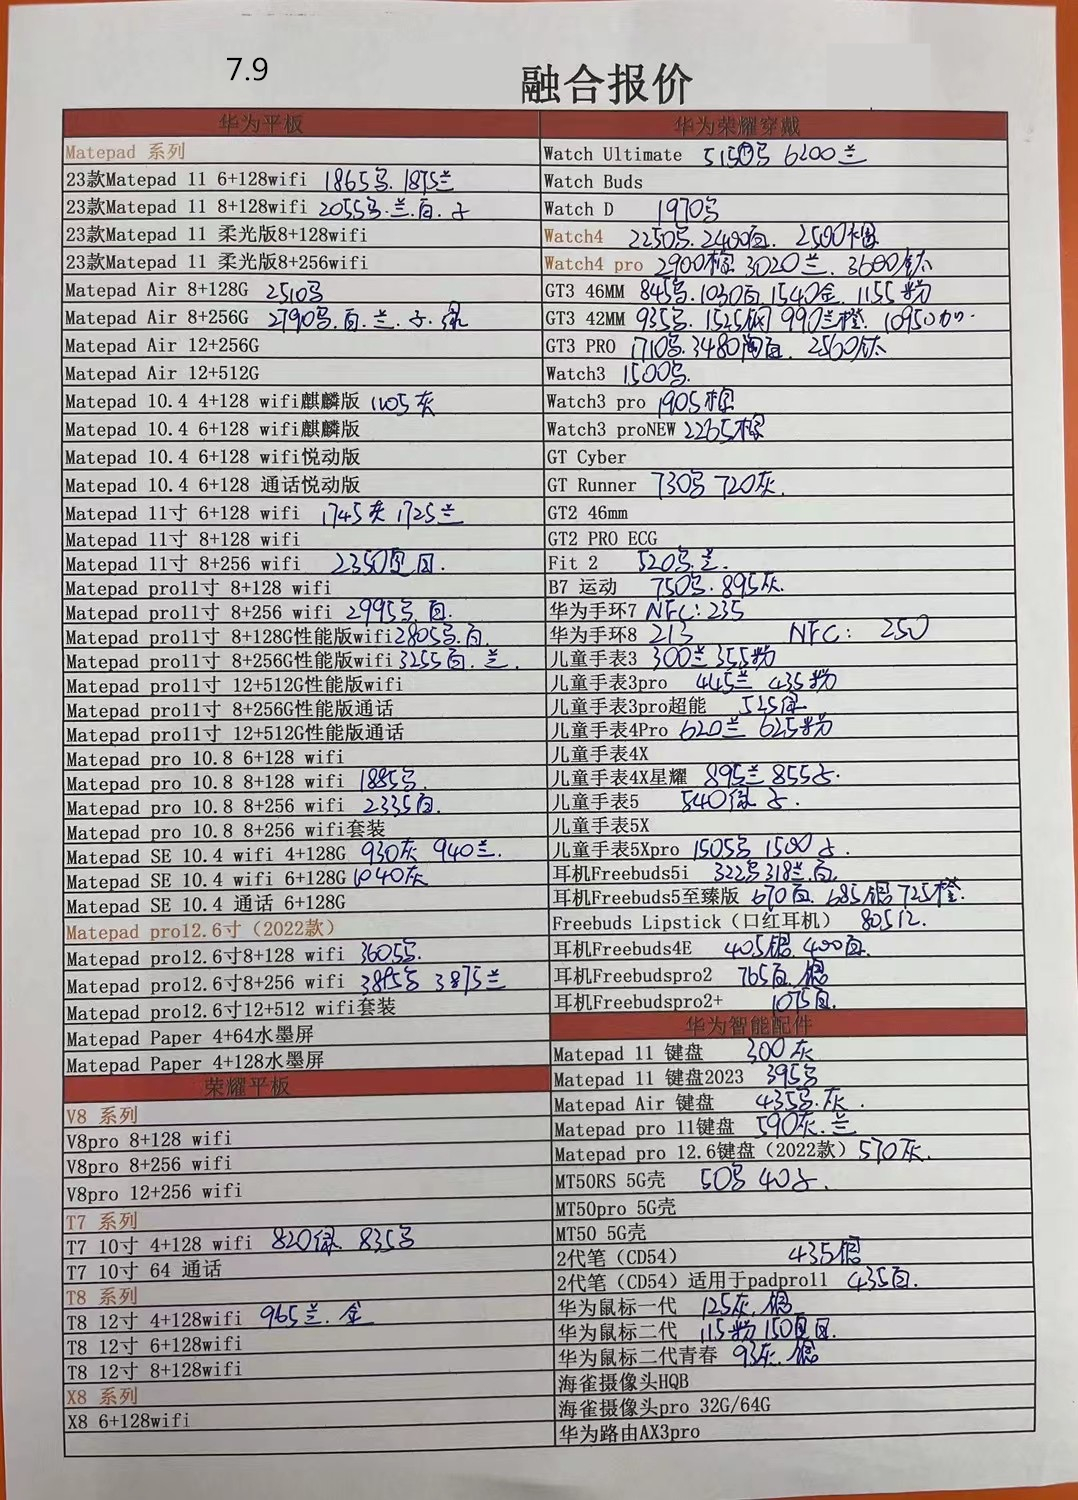 7.9
融合报价
华为平板
Matepad 系列
23款Matepad 11 6+128wifi 1865 1875兰
23款Matepad 11 8+128wifi 2055 兰.白.
23款Matepad 11 柔光版8+128wifi
23款Matepad 11 柔光版8+256wifi
Matepad Air 8+128G 2510
Matepad Air 8+256G 2790 .白.兰. .绿
Matepad Air 12+256G
Matepad Air 12+512G
Matepad 10.4 4+128 wifi麒麟版 1105灰
Matepad 10.4 6+128 wifi麒麟版
Matepad 10.4 6+128 wifi悦动版
Matepad 10.4 6+128 通话悦动版
Matepad 11寸 6+128 wifi 1745灰 1725兰
Matepad 11寸 8+128 wifi
Matepad 11寸 8+256 wifi 2350
Matepad pro11寸 8+128 wifi
Matepad pro11寸 8+256 wifi 2995 .白.
Matepad pro11寸 8+128G性能版wifi 2805 .白.
Matepad pro11寸 8+256G性能版wifi 3255白.兰.
Matepad pro11寸 12+512G性能版wifi
Matepad pro11寸 8+256G性能版通话
Matepad pro11寸 12+512G性能版通话
Matepad pro 10.8 6+128 wifi
Matepad pro 10.8 8+128 wifi 1885
Matepad pro 10.8 8+256 wifi 2335白.
Matepad pro 10.8 8+256 wifi套装
Matepad SE 10.4 wifi 4+128G 930灰 940兰.
Matepad SE 10.4 wifi 6+128G 1040灰
Matepad SE 10.4 通话 6+128G
Matepad pro12.6寸（2022款）
Matepad pro12.6寸8+128 wifi 3605
Matepad pro12.6寸8+256 wifi 3875兰
Matepad pro12.6寸12+512 wifi套装
Matepad Paper 4+64水墨屏
Matepad Paper 4+128水墨屏
荣耀平板
V8 系列
V8pro 8+128 wifi
V8pro 8+256 wifi
V8pro 12+256 wifi
T7 系列
T7 10寸 4+128 wifi 820绿. 835
T7 10寸 64 通话
T8 系列
T8 12寸 4+128wifi 965兰.金
T8 12寸 6+128wifi
T8 12寸 8+128wifi
X8 系列
X8 6+128wifi
华为荣耀穿戴
Watch Ultimate 5150 6200兰
Watch Buds
Watch D 1970
Watch4 2250 .2400白. 2500棕
Watch4 pro 2900棕 3020兰. 3600钛
GT3 46MM 845 .1030白.1540金. 1155粉
GT3 42MM 935 .1525钢 990兰橙.
GT3 PRO 1710 .3480陶白. 2560钛
Watch3 1500
Watch3 pro 1905棕
Watch3 proNEW 2265棕
GT Cyber
GT Runner 730 720灰.
GT2 46mm
GT2 PRO ECG
Fit 2 520 .兰.
B7 运动 750 .895灰.
华为手环7 NFC:235
华为手环8 213 NFC: 250
儿童手表3 300兰 355粉
儿童手表3pro 445兰 435粉
儿童手表3pro超能 525绿
儿童手表4Pro 620兰 625粉
儿童手表4X
儿童手表4X星耀 895兰 855
儿童手表5 540绿
儿童手表5X
儿童手表5Xpro 1505 1500
耳机Freebuds5i 322 318兰.白.
耳机Freebuds5至臻版 670白. 685银 725橙.
Freebuds Lipstick（口红耳机） 805红.
耳机Freebuds4E 405银. 400白.
耳机Freebudspro2 765白.银
耳机Freebudspro2+ 1075白.
华为智能配件
Matepad 11 键盘 300灰
Matepad 11 键盘2023 395
Matepad Air 键盘 435 .灰.
Matepad pro 11键盘 590灰.兰
Matepad pro 12.6键盘（2022款）570灰.
MT50RS 5G壳 50 40
MT50pro 5G壳
MT50 5G壳
2代笔（CD54） 435银
2代笔（CD54）适用于padpro11 435白.
华为鼠标一代 125灰.银
华为鼠标二代 115粉 150
华为鼠标二代青春 93灰.银
海雀摄像头HQB
海雀摄像头pro 32G/64G
华为路由AX3pro